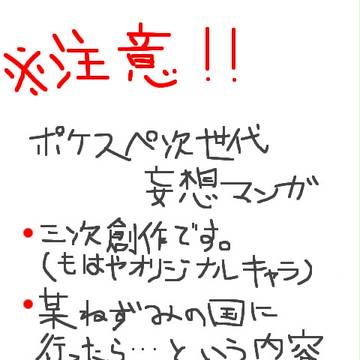 ※注意!!
ポケスペ次世代
妄想マンガ
•三次創作です。
(もはやオリジナルキャラ)
•某ねずみの国に
行ったら…という内容